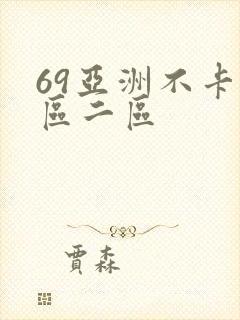 69亞洲不卡
區二區
賈森